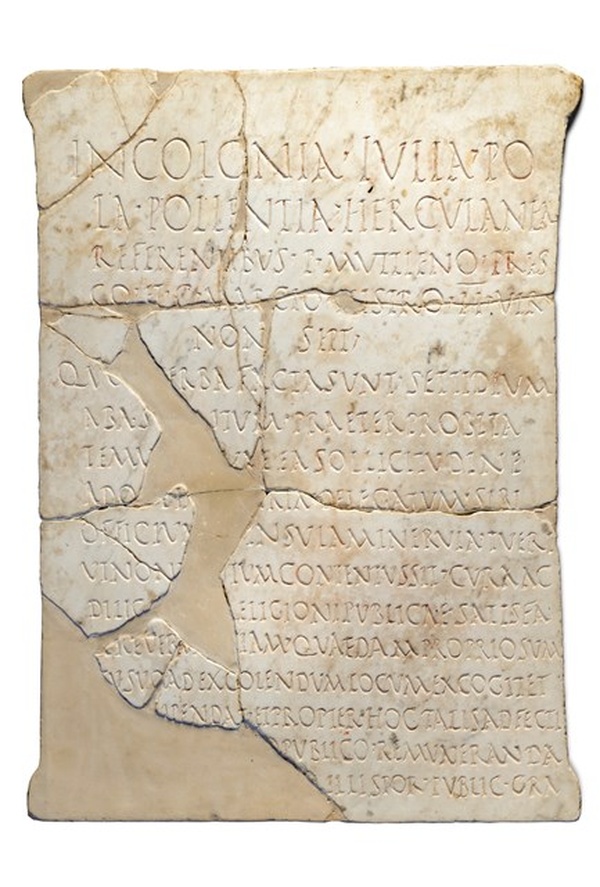 IN COLONIA · IVLIA · PO
LA · POLLENTIA · HERCVLANEA
REFERENTIBVS · P · MVTILENO PRIS
II · VIR
NON SEPT
FACTA SVNT · SETTIDIVM
ABAS ITVM · PRAETER PROBITA
TEM V EA SOLLICITVDINE
DELEGATVM · SIBI
OFFICIVM NSVLA MINERVIA TVER
VI NON IVM CONTENTVS SIT · CVRA AC
DILIG ELIGIONI PVBLICAE SATIS FA
QVAEDAM PROPRIO SVM
SVO AD EXCOLENDVM LOCVM EXCOGITET
IPENDAT ET PROPTER · HOC TALIS ADFECTI
PVBLICO · REMVNERANDA
ILLIS POR · PVBLIC · GRA